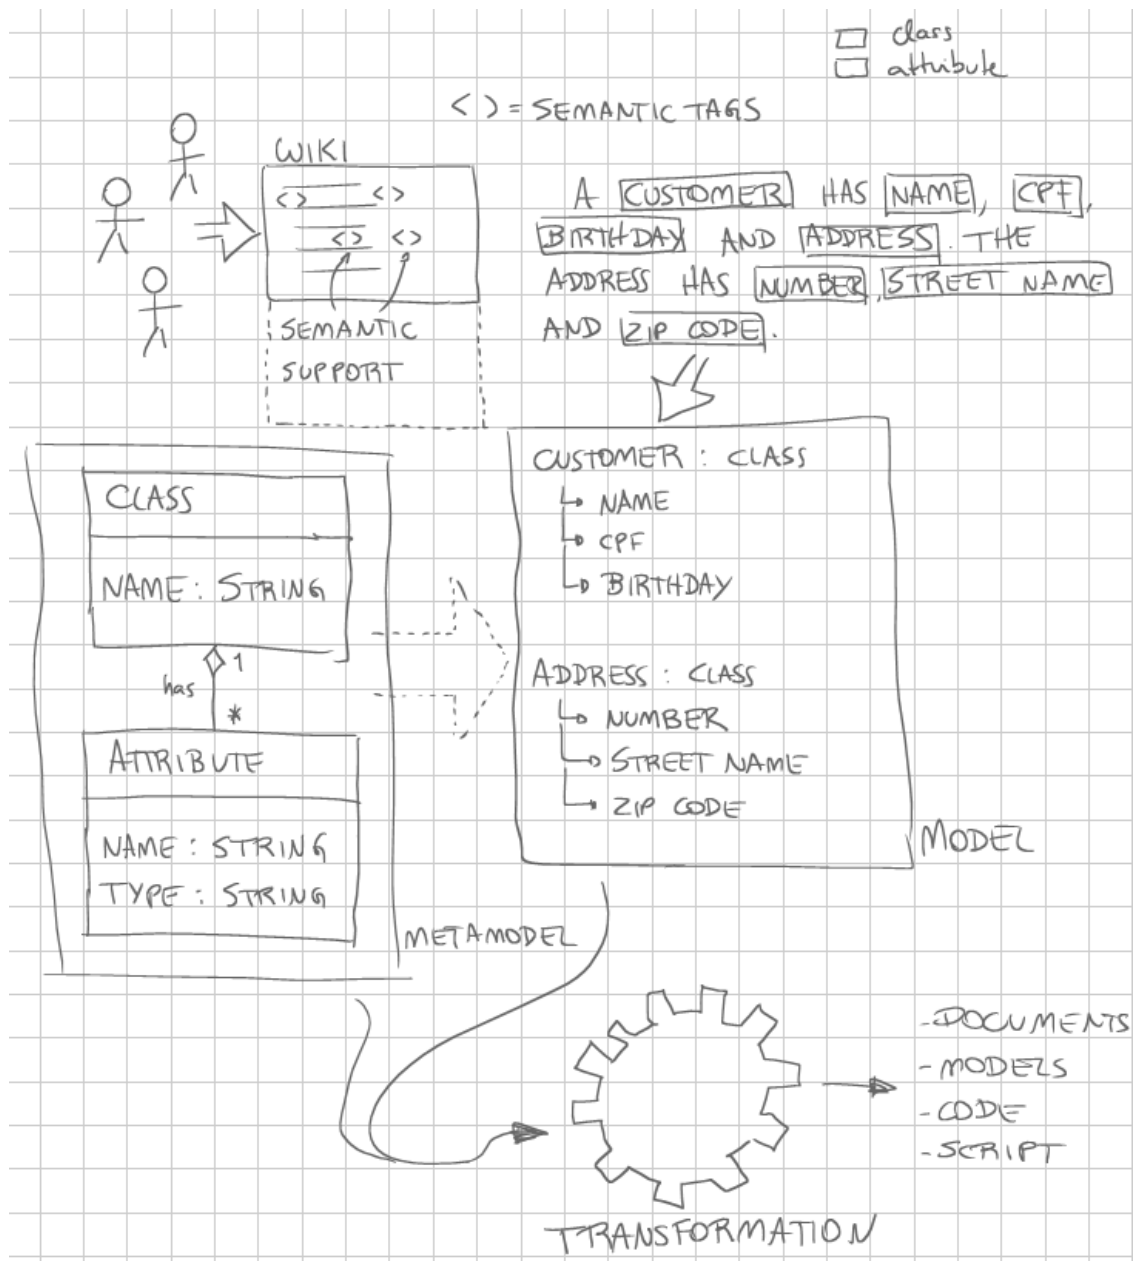 class
attribute
<> = SEMANTIC TAGS
WIKI
<> <>
<> <>
SEMANTIC
SUPPORT
A CUSTOMER HAS NAME, CPF,
BIRTHDAY AND ADDRESS. THE
ADDRESS HAS NUMBER, STREET NAME
AND ZIP CODE.
CLASS
NAME: STRING
1
has
*
ATTRIBUTE
NAME: STRING
TYPE: STRING
METAMODEL
CUSTOMER: CLASS
NAME
CPF
BIRTHDAY
ADDRESS: CLASS
NUMBER
STREET NAME
ZIP CODE
MODEL
-DOCUMENTS
-MODELS
-CODE
-SCRIPT
TRANSFORMATION